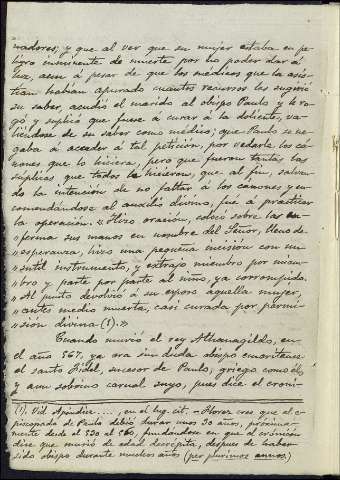 nadores; y que al ver que su mujer estaba en pe-
ligro inminente de muerte por no poder dar á
luz, aun á pesar de que los médicos que la asis-
tían habían apurado cuantos recursos les sugirió
su saber, acudió el marido al obispo Paulo y le ro-
gó y suplicó que fuese á curar á la doliente, va-
liéndose de su saber como médico; que Paulo se ne-
gaba á acceder á tal petición, por vedarle los cá-
nones que lo hiciera, pero que fueron tantas las
súplicas que todos le hicieron, que al fin, salvan-
do la intención de no faltar á los cánones y en-
comendándose al auxilio divino, fué á practicar
la operación. «Hizo oración, colocó sobre las en-
»ferma sus manos en nombre del Señor, lleno de
»esperanza, hizo una pequeña incisión con un
»sutil instrumento, y extrajo miembro por miem-
»bro y parte por parte al niño, ya corrompido.
»Al punto devolvió á su esposo aquella mujer,
»antes medio muerta, casi curada por permi-
»sion divina (1).»
Cuando murió el rey Athanagildo, en
el año 567, ya era sin duda obispo emeritense
el santo Fidel, sucesor de Paulo, griego como él,
y aun sobrino carnal suyo, pues dice el croni-
(1). Vid Apéndice...., en el lug. cit. - Florez cree que el e-
piscopado de Paulo debió durar unos 30 años, próxima-
mente desde el 530 al 560, fundándose en que el crónicón
dice que murió de edad decrépita, despues de haber
sido obispo durante muchos años (per plurimos annos.)